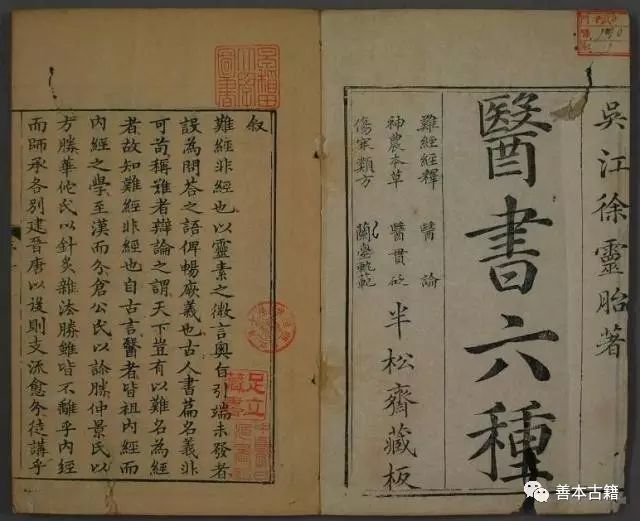 吳江徐靈胎著
醫書六種
難經經釋 醫論
神農本草 醫貫砭
傷寒類方 蘭臺軌範
半松齋藏板
叙
難經非經也以靈素之微言奧旨引端未發者
設為問答之語俾暢厥義也古人書篇名義非
可苟稱難者辯論之謂天下豈有以難名為經
者故知難經非經也自古言醫者皆祖內經而
內經之學至漢而分倉公氏以診勝仲景氏以
方勝華佗氏以針灸雜法勝雖皆不離乎內經
而師承各別逮晉唐以後則支流愈分徒講乎
足立藏書
善本古籍